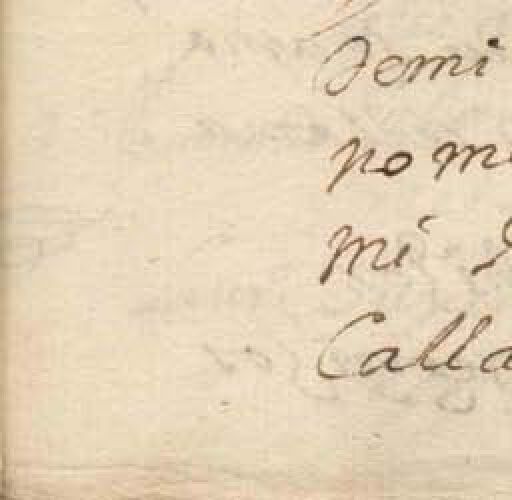 demi
no m
mi
Calla